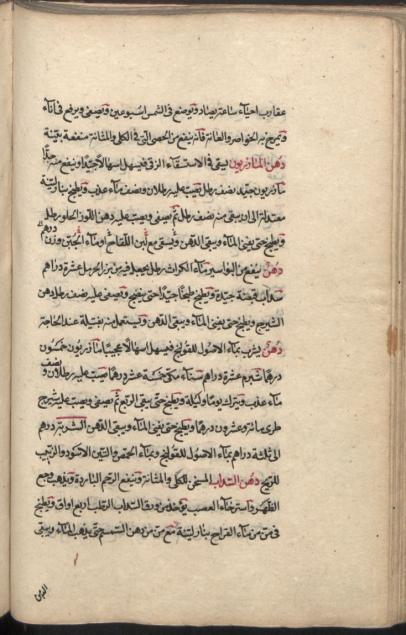 عقارب احياء ساعة يصاد ويوضع في الشمس اسبوعين ويصفى ويرفع في اناء
ويمرخ به الخواصر والعانة فانه ينفع من الحصى التي في الكلى والمثانة منفعة بينة
دهن المازريون يسقى في الاستسقاء الزقي فيسهل اسهالا عجيبا وينفع منه جدا
مازريون جيد نصف رطل يصب عليه رطلان ونصف ماء عذب ويطبخ بنار لينة
معتدلة الى ان يبقى منه نصف رطل ثم يصفى ويصب عليه دهن اللوز الحلو رطل
ويطبخ حتى يفنى الماء ويبقى الدهن ويسقى مع لبن اللقاح او ماء الجبن وزن درهم
دهن ينفع من البواسير ماء الكراث رطل يجعل فيه من بزر الحرمل عشرة دراهم
سذاب قبضة جيدة ويطبخ طبخا جيدا حتى ينضج ويصفى عليه نصف رطل دهن
الشيرج ويطبخ حتى يفنى الماء ويبقى الدهن ويستعمل منه بفتيلة عند الحاجة
دهن يشرب بماء الاصول للقولنج فيسهل اسهالا عجيبا مازريون خمسون
درهما شبرم عشرة دراهم سناء مكي خمسة عشر درهما يصب عليه رطلان ونصف
ماء عذب ويترك يوما وليلة ويطبخ حتى يبقى الربع ثم يصفى ويصب عليه شيرج
طري مائة وعشرون درهما ويطبخ حتى يفنى الماء ويبقى الدهن الشربة درهم
الى ثلثة دراهم بماء الاصول للقولنج وبماء الحمص والتين الاسود والزبيب
للريح دهن السذاب المسخن للكلى والمثانة وينفع الرحم الباردة ويذهب وجع
الظهر واسترخاء العصب يؤخذ من ورق السذاب الرطب اربع اواق ويطبخ
في من من ماء القراح بنار لينة مع من من دهن السمسم حتى يذهب الماء ويبقى
الدهن